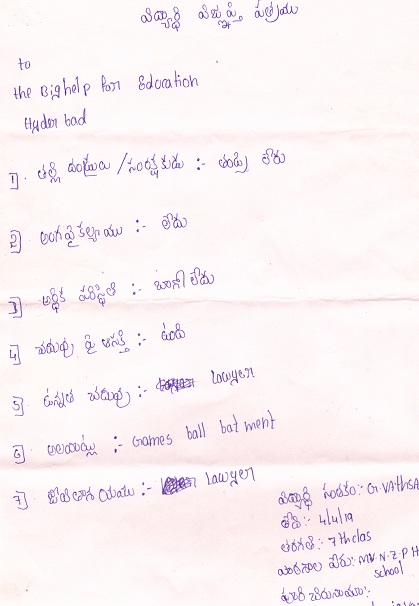 విద్యార్థి విజ్ఞప్తి పత్రము
to
the Bighelp for Edoration
Hyder bad
1] తల్లి దండ్రులు / సంరక్షకుడు :- తండ్రి లేరు
2] అంగవైకల్యము :- లేదు
3] ఆర్థిక పరిస్థితి :- బాగా లేదు
4] చదువు పై ఆసక్తి :- ఉంది
5] ఉన్నత చదువు :- lawyer
6] అలవాట్లు :- Games ball bat ment
7] జీవితాశయము :- lawyer
విద్యార్థి సంతకం: G. VAthSA
తేది :- 4/4/19
తరగతి :- 7th clas
పాఠశాల పేరు: M.V.N.Z.P H
school
పూర్తి చిరునామా: